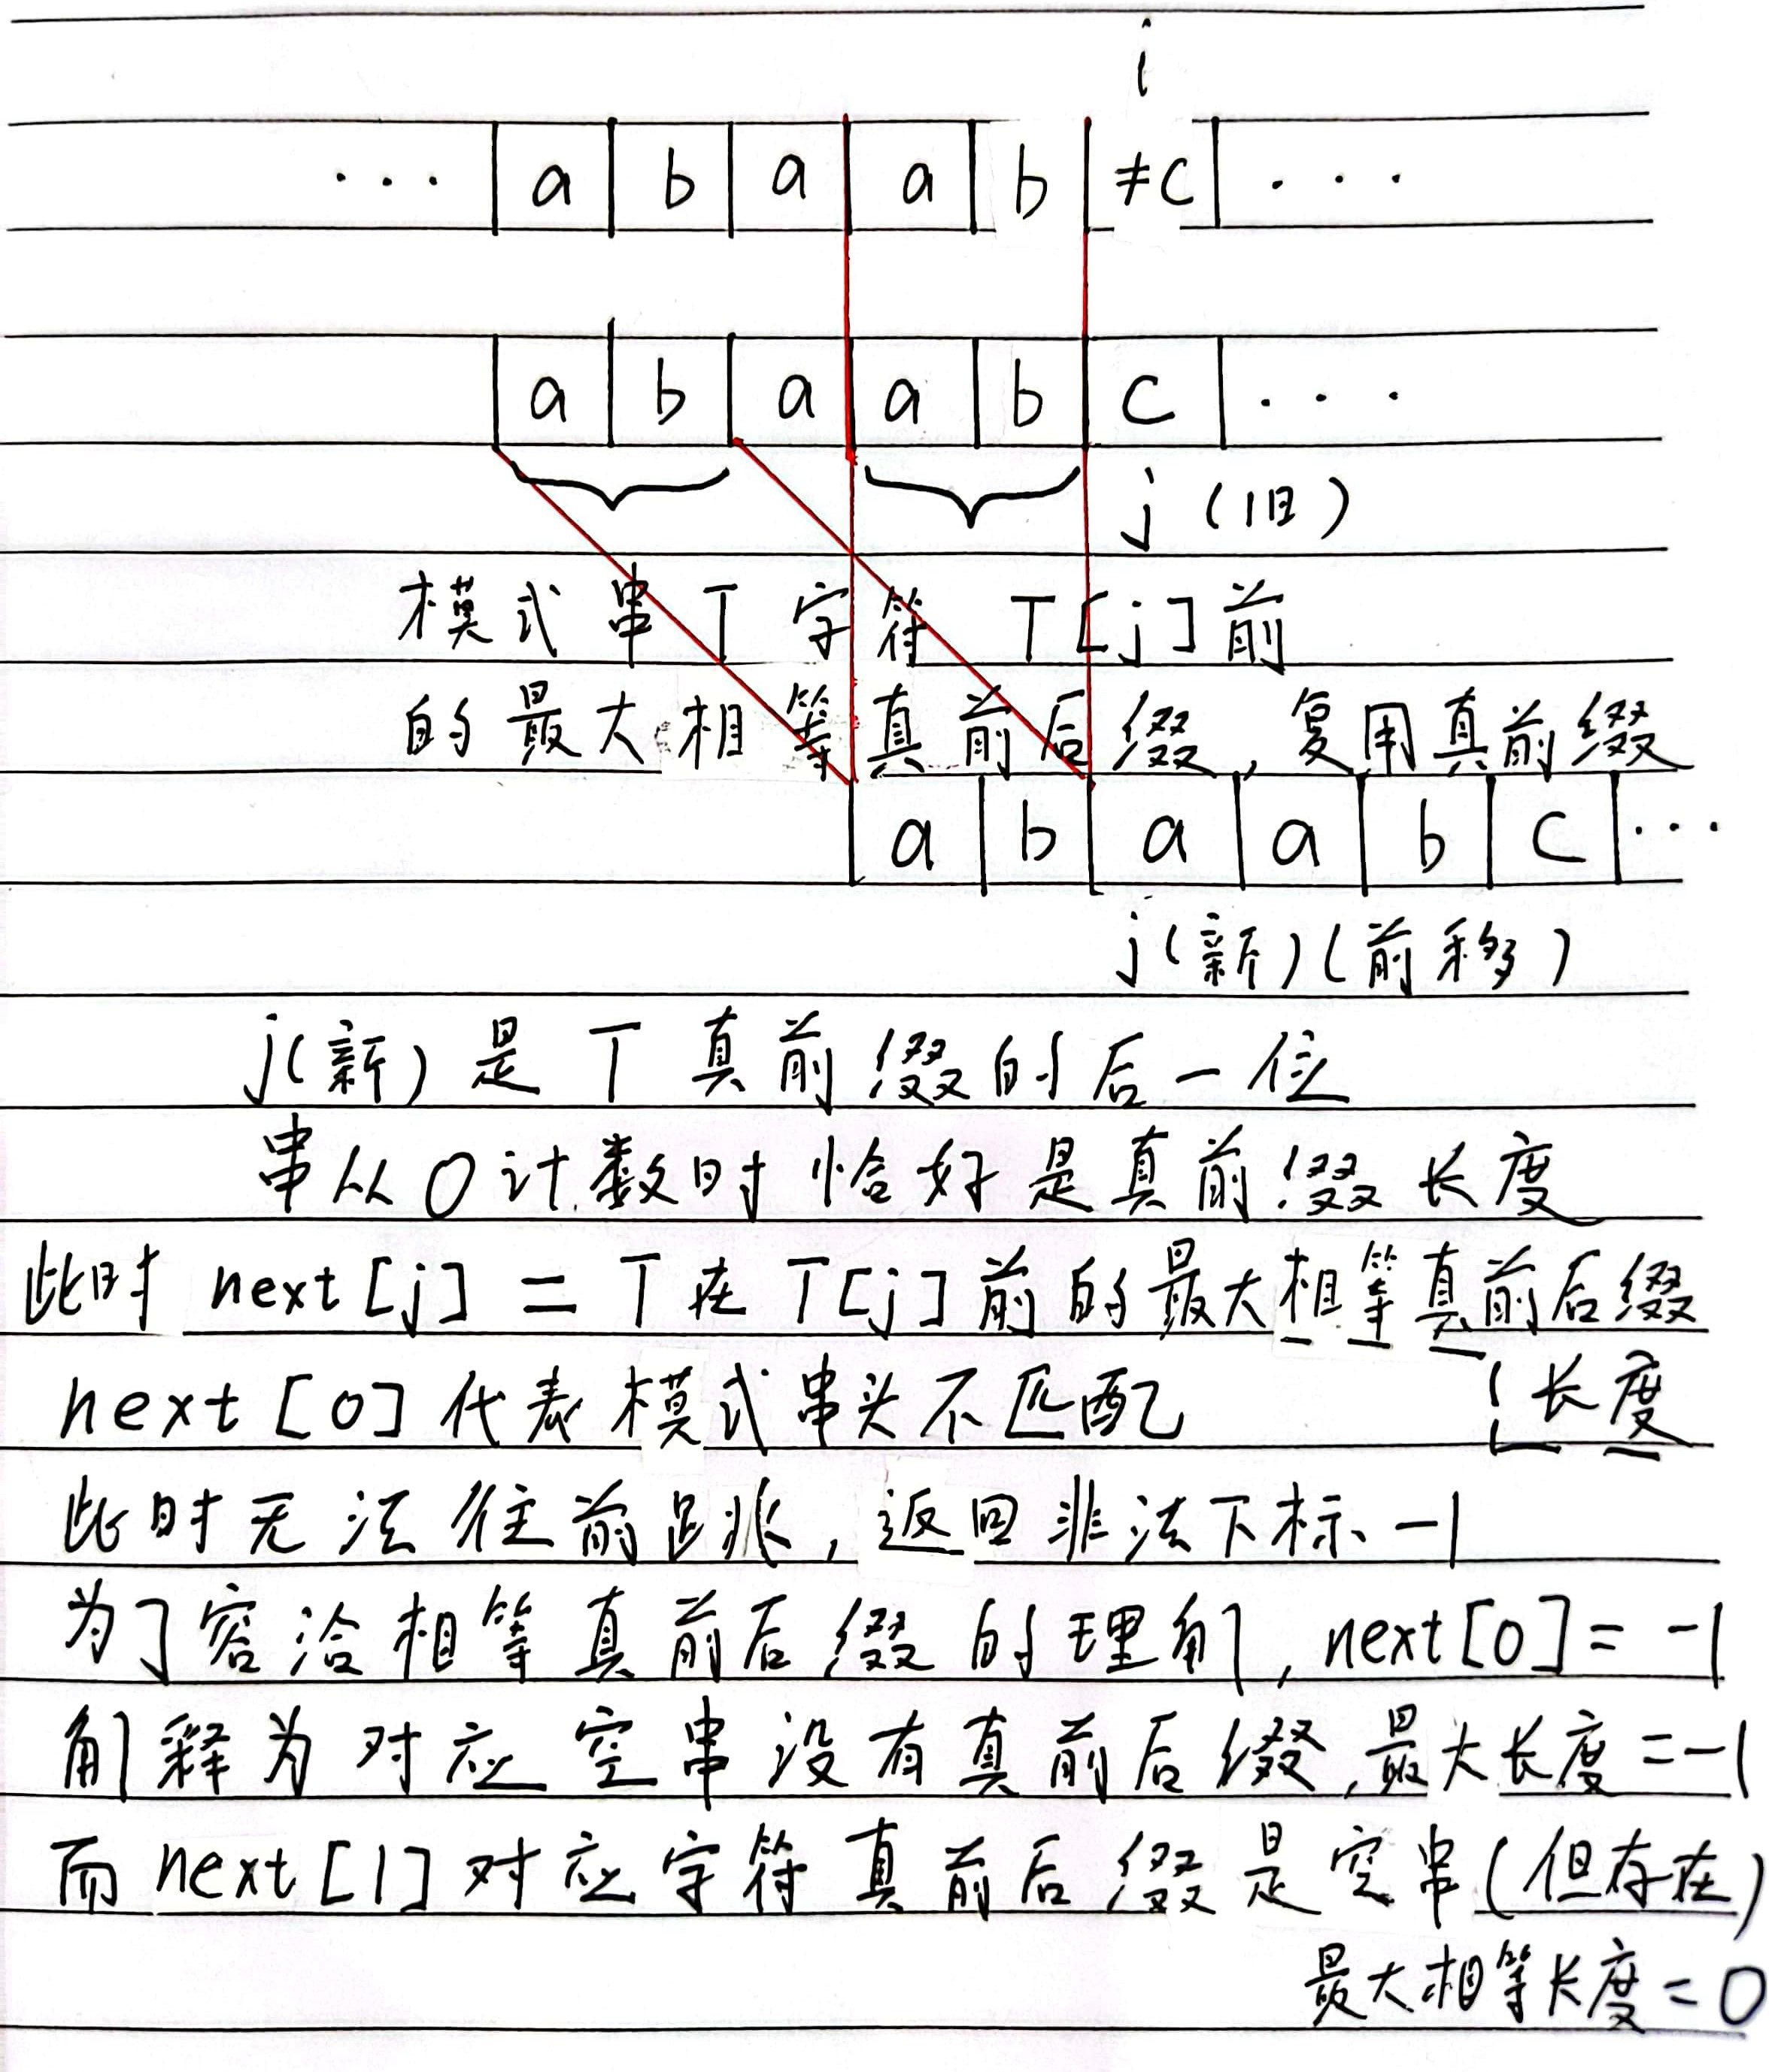 i
... a b a a b ≠c ...
a b a a b c ...
j (旧)
模式串T字符 T[j]前
的最大相等真前后缀,复用真前缀
a b a a b c ...
j(新)(前移)
j(新)是T真前缀的后一位
串从0计数时恰好是真前缀长度
此时 next[j] = T在T[j]前的最大相等真前后缀
长度
next[0]代表模式串头不匹配
此时无法往前跳,返回非法下标-1
为了容洽相等真前后缀的理解,next[0]=-1
解释为对应空串没有真前后缀,最大长度=-1
而next[1]对应字符真前后缀是空串(但存在)
最大相等长度=0